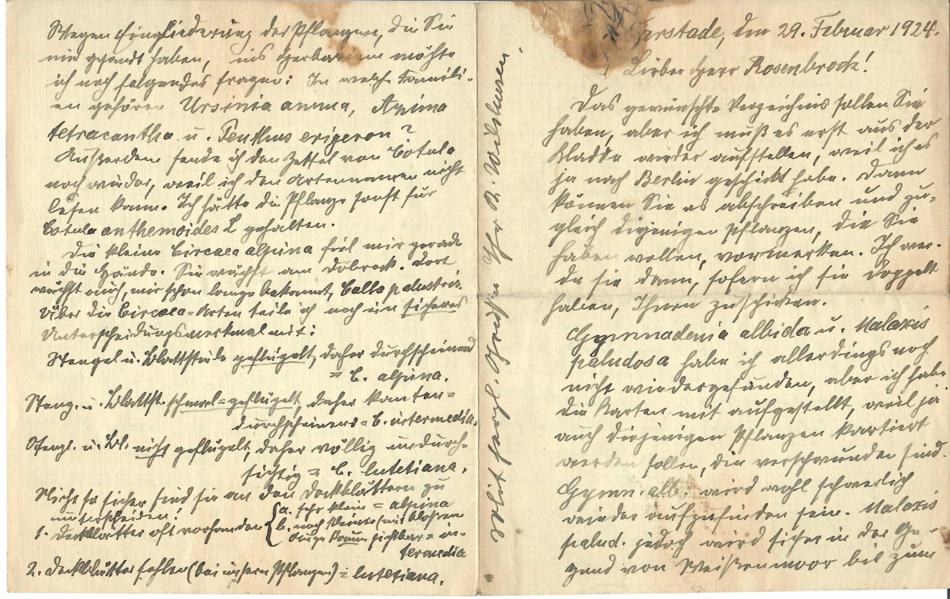 erstade, den 29. Februar 1924.
Lieber Herr Rosenbrock!
Das gewünschte Verzeichnis sollen Sie
haben, aber ich muß es erst aus der
Kladde wieder aufstellen, weil ich es
ja nach Berlin geschickt habe. Dann
können Sie es abschreiben und zu-
gleich diejenigen Pflanzen, die Sie
haben wollen, vormerken. Ich wer-
de sie dann, sofern ich sie doppelt
habe, Ihnen zuschicken.
Gymnadenia albida u. Malaxis
paludosa habe ich allerdings noch
nicht wiedergefunden, aber ich habe
die Karten mit aufgestellt, weil ja
auch diejenigen Pflanzen kartiert
werden sollen, die verschwunden sind.
Gymn. alb. wird wohl schwerlich
wieder aufzufinden sein. Malaxis
palud. jedoch wird sicher in der Ge-
gend von Weißenmoor bis zum
Wegen Eingliederung der Pflanzen, die Sie
mir gesandt haben, ins Herbarium möchte
ich noch folgendes fragen: In welche Famili-
en gehören Ursinia annua, Azima
tetracantha u. Tenthus erigeron?
Außerdem sende ich den Zettel von Cotula
noch wieder, weil ich den Artennamen nicht
lesen kann. Ich hätte die Pflanze sonst für
Cotula anthemoides L gehalten.
Die kleine Circaea alpina fiel mir gerade
in die Hände. Sie wächst am Dobrock. Dort
wächst auch, mir schon lange bekannt, Calla palustris.
Über die Circaea-Arten teile ich noch ein sicheres
Unterscheidungsmerkmal mit:
Stengel u. Blattstiele geflügelt, daher durchscheinend
= C. alpina.
Steng. u. Blattst. schmal-geflügelt, daher Kanten=
durchscheinend = C. intermedia.
Stengl. u. Bl. nicht geflügelt, daher völlig undurch-
sichtig = C. lutetiana.
Nicht so sicher sind sie an den Deckblättern zu
unterscheiden:
1. Deckblätter oft vorhanden { a. sehr klein = alpina
b. noch kleiner (mit bloßem
Auge kaum sichtbar) = in-
termedia
2. Deckblätter fehlen (bei unsern Pflanzen) = lutetiana.
Mit herzl. Grüßen Ihr